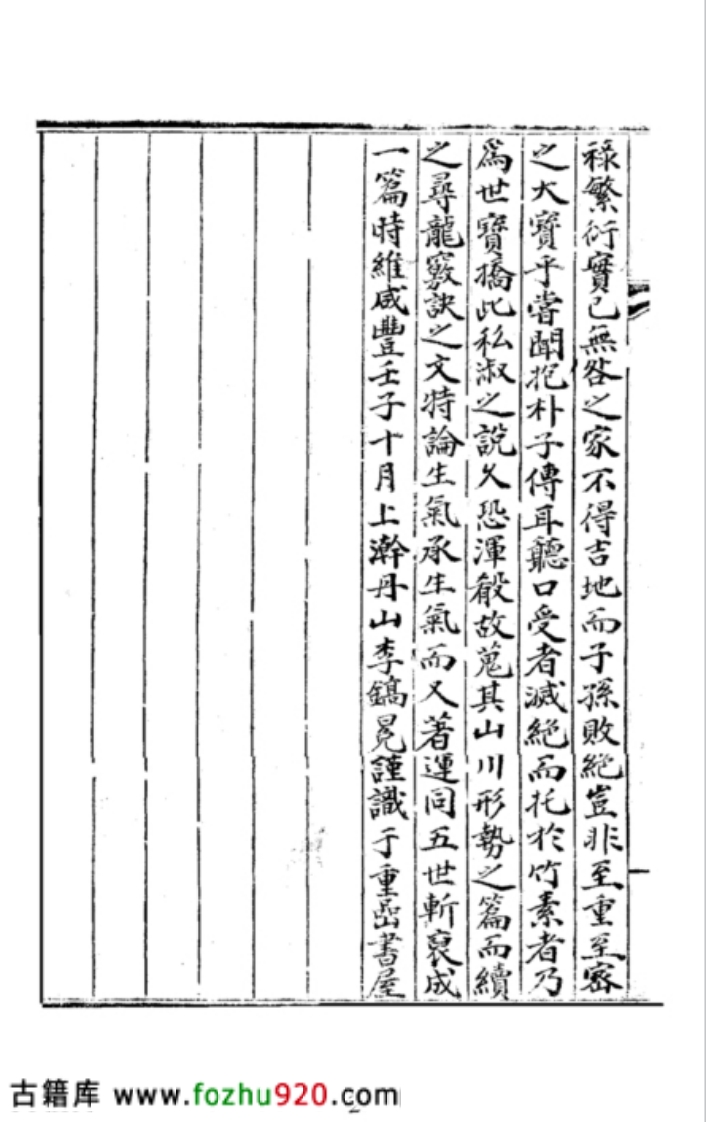 祿繁衍實已無咎之家不得吉地而子孫敗絶豈非至重至密
之大寶乎嘗聞抱朴子傳耳聽口受者滅絶而托於竹素者乃
爲世寶撟此私淑之說久恐渾殽故蒐其山川形勢之篇而續
之尋龍竅訣之文特論生氣承生氣而又著運同五世斬裒成
一篇時維咸豐壬子十月上澣丹山李鎬冕謹識于重嵒書屋
古籍库 www.fozhu920.com
2